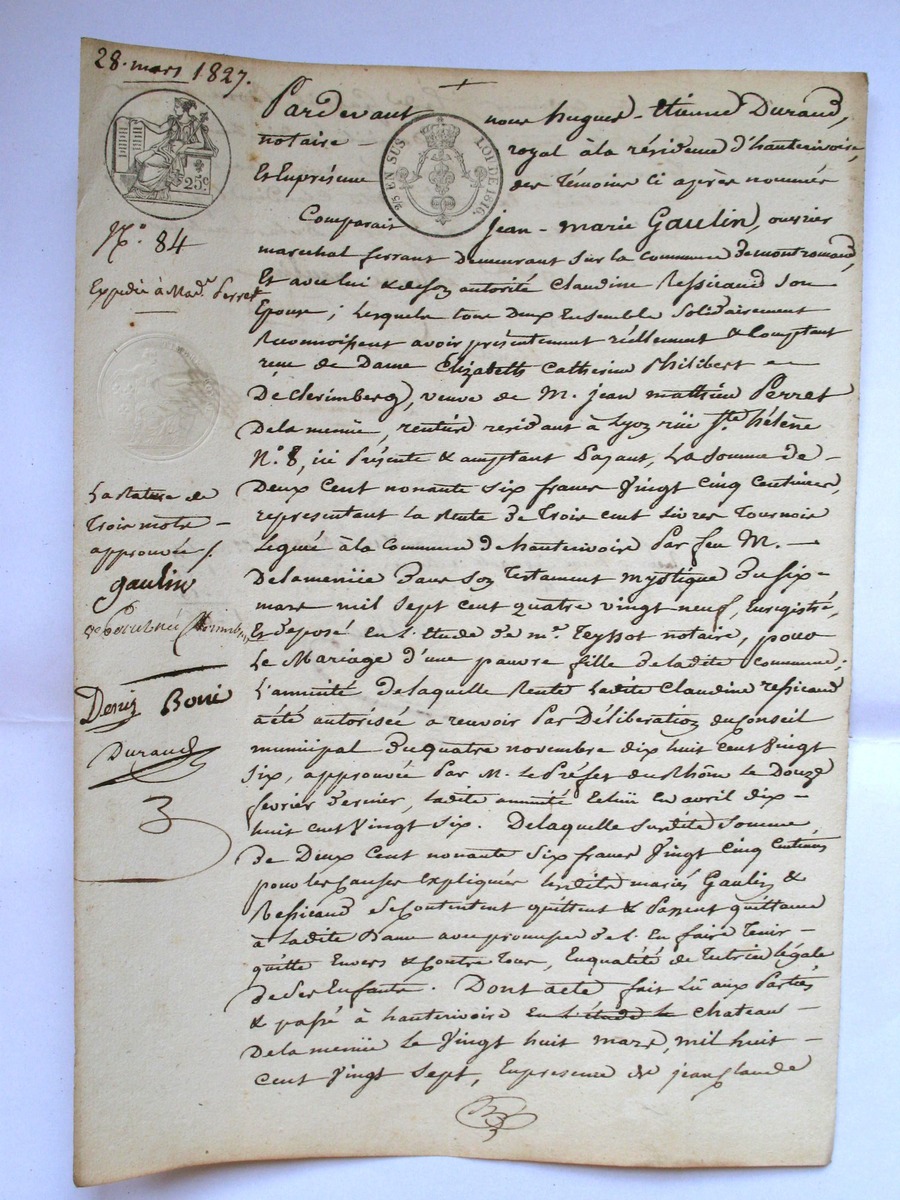 28. mars 1827.
25c
2/5 EN SUS LOI DE 1816.
N.o 84
Expédié à Mad.e Perret
La rature de
Trois mots
approuvée /.
gaulin
Denis Boni
Durand
Pardevant nous hugues-Etienne Durand,
notaire royal à la résidence d'hauterivoire,
Et Enprésence des Témoins ci après nommés
Comparait jean-marie Gaulin, ouvrier
marechal ferrant demeurant sur la Commune demontromand,
Et avec lui & deson autorité Claudine Ressicaud son
Epouse ; lesquels tous deux Ensemble Solidairement
Reconnoissent avoir présentement réellement & Comptant
reçu de Dame Elizabeth Catherine Philibert
De clerimberg, veuve de M. jean mathieu Perret
Delamenüe, rentiere residant à Lyon rüe S.te hélène
N.o 8, ici Présente & acceptant Payant, La Somme de
Deux Cent nonante six francs Vingt Cinq Centimes,
représentant la Rente de Trois cent Livres Tournois
Leguée à la Commune de hauterivoire Par feu M.
Delamenüe Dans son Testament mystique Du six
mars mil Sept cent quatre vingt neuf, Enregistré,
Et déposé en l'Etude de m.e Teyssot notaire, pour
Le Mariage d'une pauvre fille deladite Commune ;
L'annuité delaquelle Rente Ladite Claudine ressicaud
a été autorisée a recevoir Par Délibération duConseil
municipal Duquatre novembre dix huit cent Vingt
Six, approuvée Par M. le Préfet du Rhône le Douze
fevrier Dernier, ladite annuité Echüe en avril dix-
huit cent Vingt six. Delaquelle susdite Somme
de Deux Cent nonante Six francs Vingt Cinq Centimes
pour les Causes Expliquées lesdits mariés Gaulin &
Ressicaud Se Contentent quittent & Passent quittance
à Ladite Dame avec promesse de l'En faire Tenir
quitte Envers & Contre Tous, Enqualité de Tutrice légale
de Ses Enfants. Dont acte fait Lü aux Parties
& passé à hauterivoire En l'étude le Chateau
Delamenüe le Vingt huit mars, mil huit
cent Vingt Sept, Enpresence de jean Claude